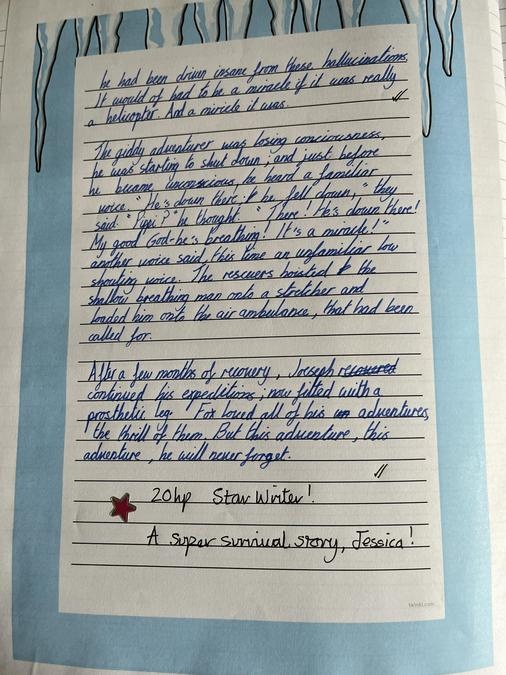 he had been driven insane from these hallucinations.
It would of had to be a miracle if it was really
a helicopter. And a miricle it was.
The giddy adventurer was losing conciousness,
he was starting to shut down; and just before
he became unconscious, he heard a familiar
voice. "He's down there: he fell down," they
said. "Pippi?" he thought. "There! He's down there!
My good God-he's breathing! It's a miracle!"
another voice said, this time an unfamiliar low
shouting voice. The rescuers hoisted the
shallow breathing man onto a stretcher and
loaded him onto the air ambulance, that had been
called for.
After a few months of recovery, Joeseph recovered
continued his expeditions; now fitted with a
prosthetic leg. Fox loved all of his adventures,
the thrill of them. But this adventure, this
adventure, he will never forget.
20hp Star Writer!
A super survival story, Jessica!
twinkl.com